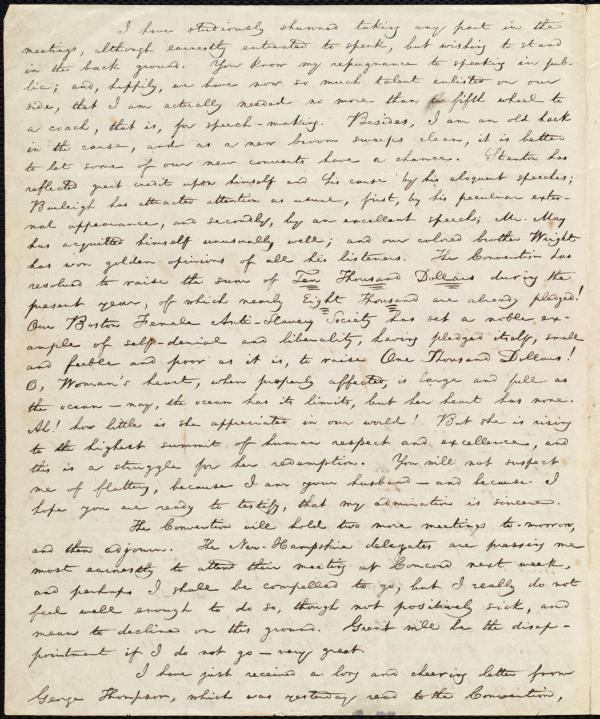 I have studiously shunned taking any part in the
meetings, although earnestly entreated to speak, but wishing to stand
in the back ground. You know my repugnance to speaking in pub-
lic; and, happily, we have now so much talent enlisted on our
side, that I am actually needed no more than a fifth wheel to
a coach, that is, for speech-making. Besides, I am an old hack
in the cause, and as a new broom sweeps clean, it is better
to let some of our new converts have a chance. Stanton has
reflected great credit upon himself and his cause by his eloquent speeches;
Burleigh has attracted attention as usual, first, by his peculiar exter-
nal appearance, and secondly, by an excellent speech; Mr. May
has acquitted himself unusually well; and our colored brother Wright
has won golden opinions of all his listeners. The Convention has
resolved to raise the sum of Ten Thousand Dollars during the
present year, of which nearly Eight Thousand are already pledged!
Our Boston Female Anti-Slavery Society has set a noble ex-
ample of self-denial and liberality, having pledged itself, small
and feeble and poor as it is, to raise One Thousand Dollars!
O, Woman's heart, when properly affected, is large and full as
the ocean — nay, the ocean has its limits, but her heart has none.
Ah! how little is she appreciated in our world! But she is rising
to the highest summit of human respect and excellence, and
this is a struggle for her redemption. You will not suspect
me of flattery, because I am your husband — and because I
hope you are ready to testify, that my admiration is sincere.
The Convention will hold two more meetings to-morrow,
and then adjourn. The New-Hampshire delegates are pressing me
most earnestly to attend their meeting at Concord next week,
and perhaps I shall be compelled to go; but I really do not
feel well enough to do so, though not positively sick, and
mean to decline on this ground. Great will be the disap-
pointment if I do not go — very great.
I have just received a long and cheering letter from
George Thompson, which was yesterday read to the Convention,